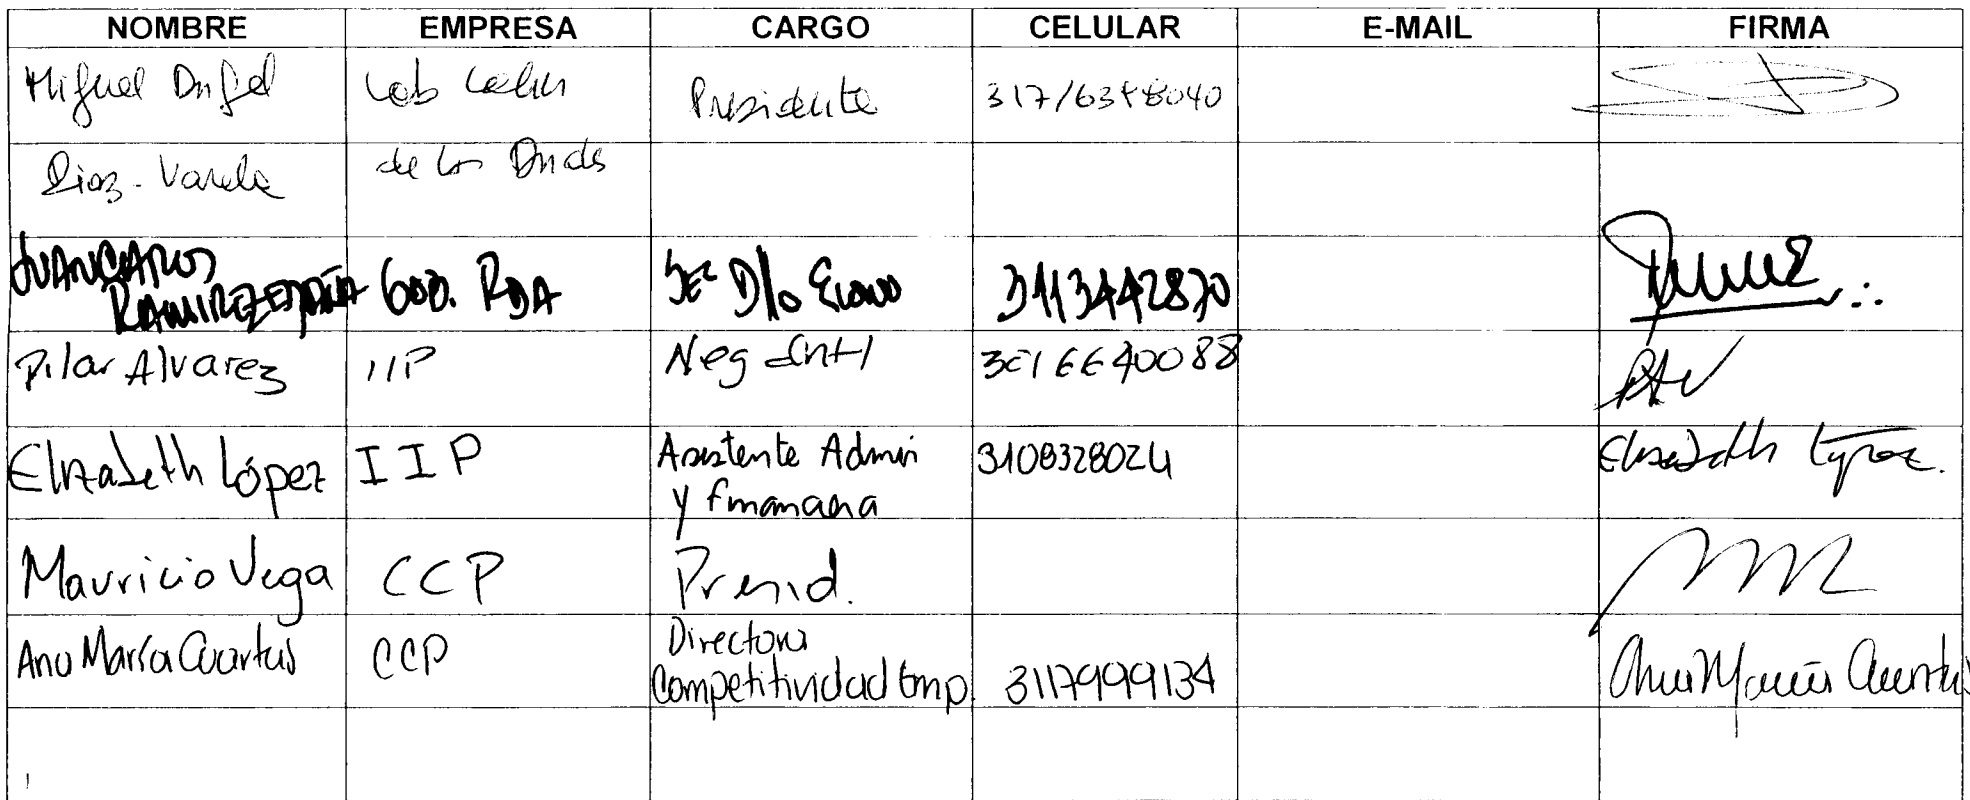 NOMBRE EMPRESA CARGO CELULAR E-MAIL FIRMA
Miguel Angel Lab Presidente
Diaz-Varela de los Andes
JUAN CARLOS
RAMIREZ ESPAÑA GOB. RDA Sec D/o Econo 3113442870
Pilar Alvarez IIP Neg Intl
Elizabeth López IIP Asistente Admin 3108328024 Elizabeth López.
y financiera
Mauricio Vega CCP Presid.
Ana María Cuartas CCP Directora
Competitividad Emp. 3117999134 Ana María Cuartas